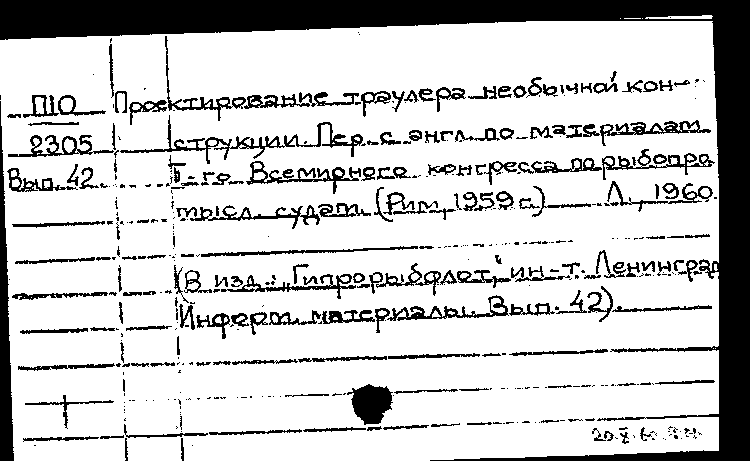 П10 Проектирование траулера необычной кон-
2305 струкции. Пер. с англ. по материалам
Вып. 42. I-го Всемирного конгресса по рыбопро
мысл. судам. (Рим, 1959 г.) Л., 1960
(В изд.: „Гипрорыбфлот," ин-т. Ленинград
Информ. материалы. Вып. 42).
20.X.60